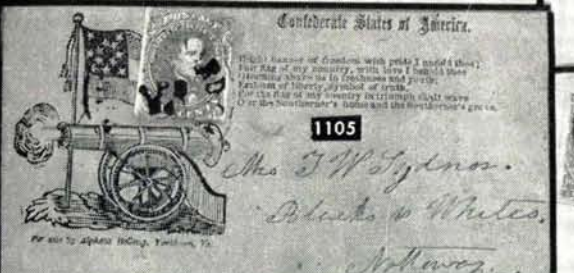 Confederate States of America.
Bright banner of freedom with pride I unfold thee;
Fair flag of my country, with love I behold thee
Gleaming above us in freshness and youth;
Emblem of liberty, symbol of truth,
For the flag of my country in triumph shall wave
O'er the Southerner's home and the Southerner's grave.
1105
Mrs T W Sydnor.
Blacks & Whites,
Nottoway
For sale by Yorktown, Va.